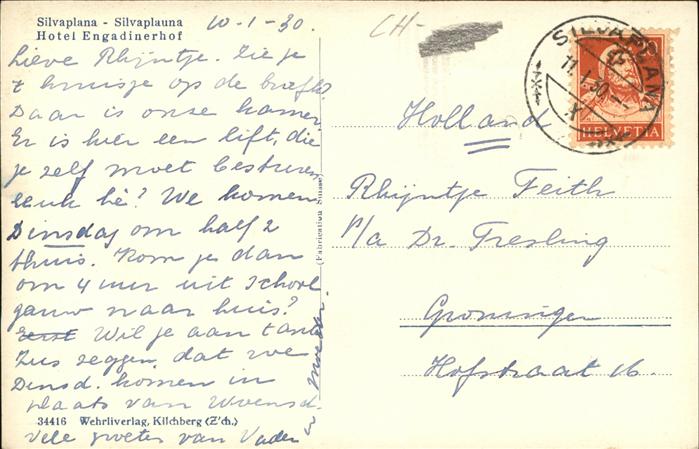 Silvaplana - Silvaplauna
Hotel Engadinerhof
10-1-30.
CH-
Lieve Rhijntje. Zie je
't kruisje op de
Daar is onze kamer.
Er is hier een lift, die
je zelf moet besturen
leuk hè? We komen
Dinsdag om half 2
thuis. Kom je dan
om 4 uur uit school
gauw naar huis?
Eerst Wil je aan tante
Zus zeggen, dat we
Dinsd. komen in
plaats van Woensd.
34416 Wehrliverlag, Kilchberg (Z'ch.)
Vele groeten van Vader
en Moeder.
(Fabrication Suisse)
SILVAPLANA
11.I.30
HELVETIA
Holland
Rhijntje Feith
p/a Dr. Tresling
Groningen
Hofstraat 16.